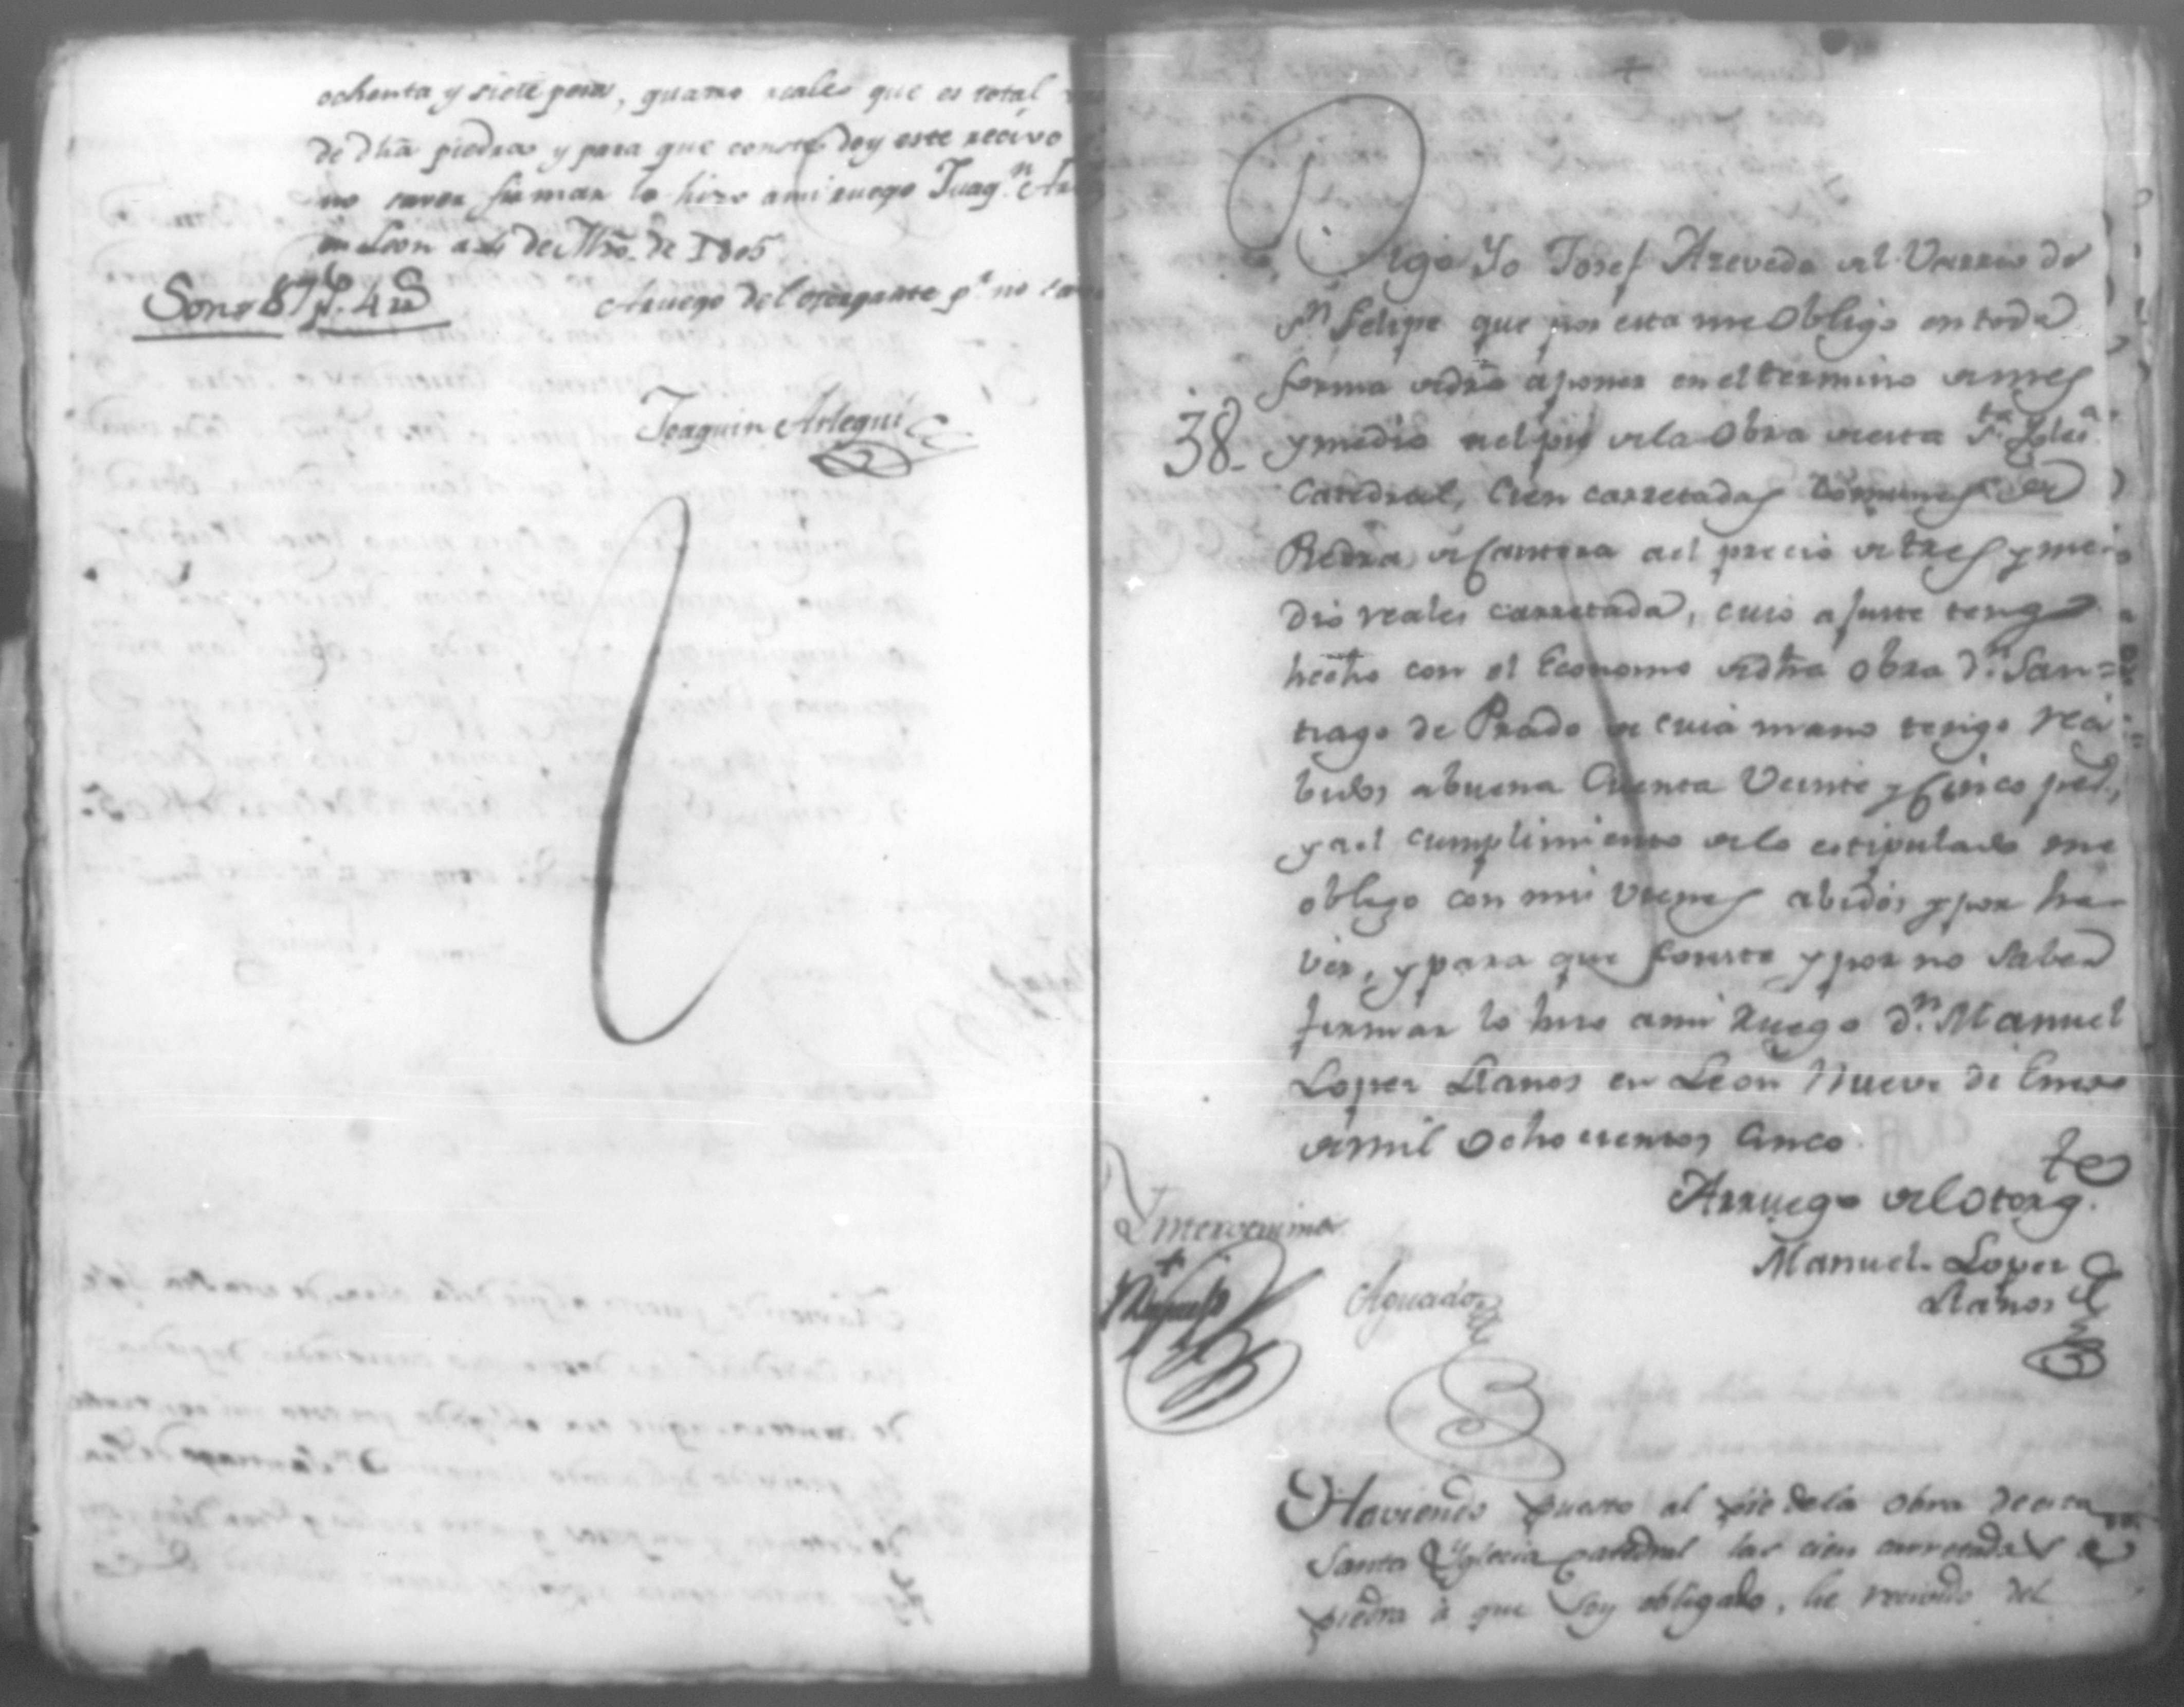 ochenta y siete pesos, quatro reales que es total
de dhã piedra y para que conste doy este recivo
no saver firmar lo hizo ami ruego Juaqⁿ
en Leon a de Mzo. de 1805
Son 87 p.ˢ 4 rˢ
Aruego del otorgante p.ʳ no
Joaquin Arlegui
+
Digo Yo Josef Azevedo del Varrio de
Sⁿ Felipe que por esta me Obligo en toda
forma de dro a poner en el termino de mes
y medio al pie de la Obra de esta Sᵗᵃ Iglesᵃ
38.
Catedral, Cien carretadas comunes de
Piedra de Cantera al precio de tres y me-
dio reales carretada, cuio ajuste tengo
hecho con el Economo de dhã Obra Dⁿ. San=
tiago de Prado de cuia mano tengo reci
bidos abuena Cuenta Veinte y Cinco pes.ˢ,
y al cumplimiento de lo estipulado me
obligo con mis Vienes abidos y por ha
ver, y para que Conste y por no Saber
firmar lo hizo ami Ruego Dⁿ. Manuel
Lopez Llanos en Leon Nueve de Enero
de mil Ochocientos Cinco.
Arruego del Otorg.ᵗᵉ
Manuel Lopez
Llanos
Intervenimos
Aguado
Haviendo puesto al pie de la Obra de esta
Santa Yglecia Catedral las cien carretadas de
piedra à que soy obligado, he recivido del